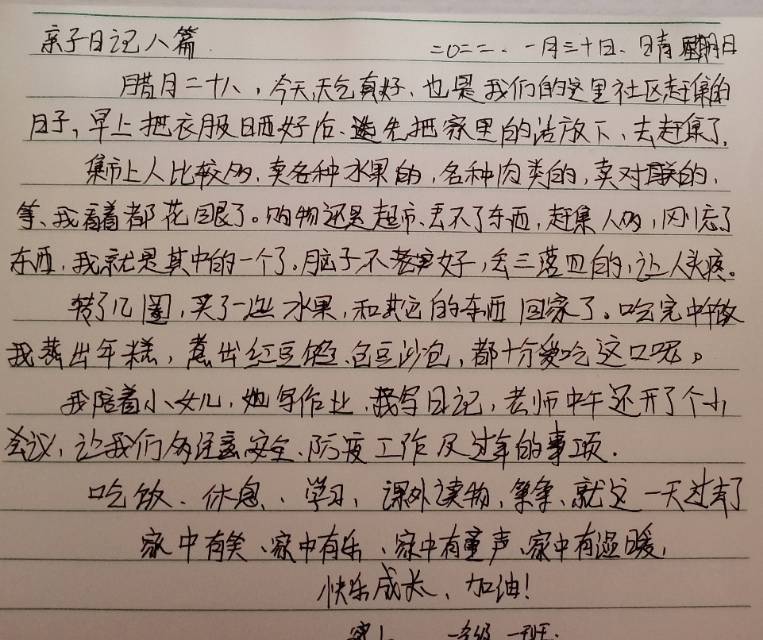 亲子日记八篇 二〇二二、一月三十日、晴 星期日
腊月二十八，今天天气真好、也是我们的这里社区赶集的
日子，早上把衣服晒好后、选先把家里的活放下、去赶集了。
集市上人比较多，卖各种水果的，各种肉类的，卖对联的，
等、我看着都花眼了。购物还是超市、丢不了东西，赶集人多，
东西，我就是其中的一个了。脑子不好，丢三落四的，让人头疼。
转了几圈，买了一些水果，和其它的东西回家了。吃完中午饭
我蒸出年糕，煮出红豆馅、包豆沙包，都十分爱吃这口呢。
我陪着小女儿，她写作业、我写日记，老师中午还开了个小
会议，让我们多注意安全、防疫工作及过年的事项．
吃饭、休息、学习，课外读物，等等、就这一天过去了
家中有笑、家中有乐、家中有童声、家中有温暖，
快乐成长、加油！
一年级一班．